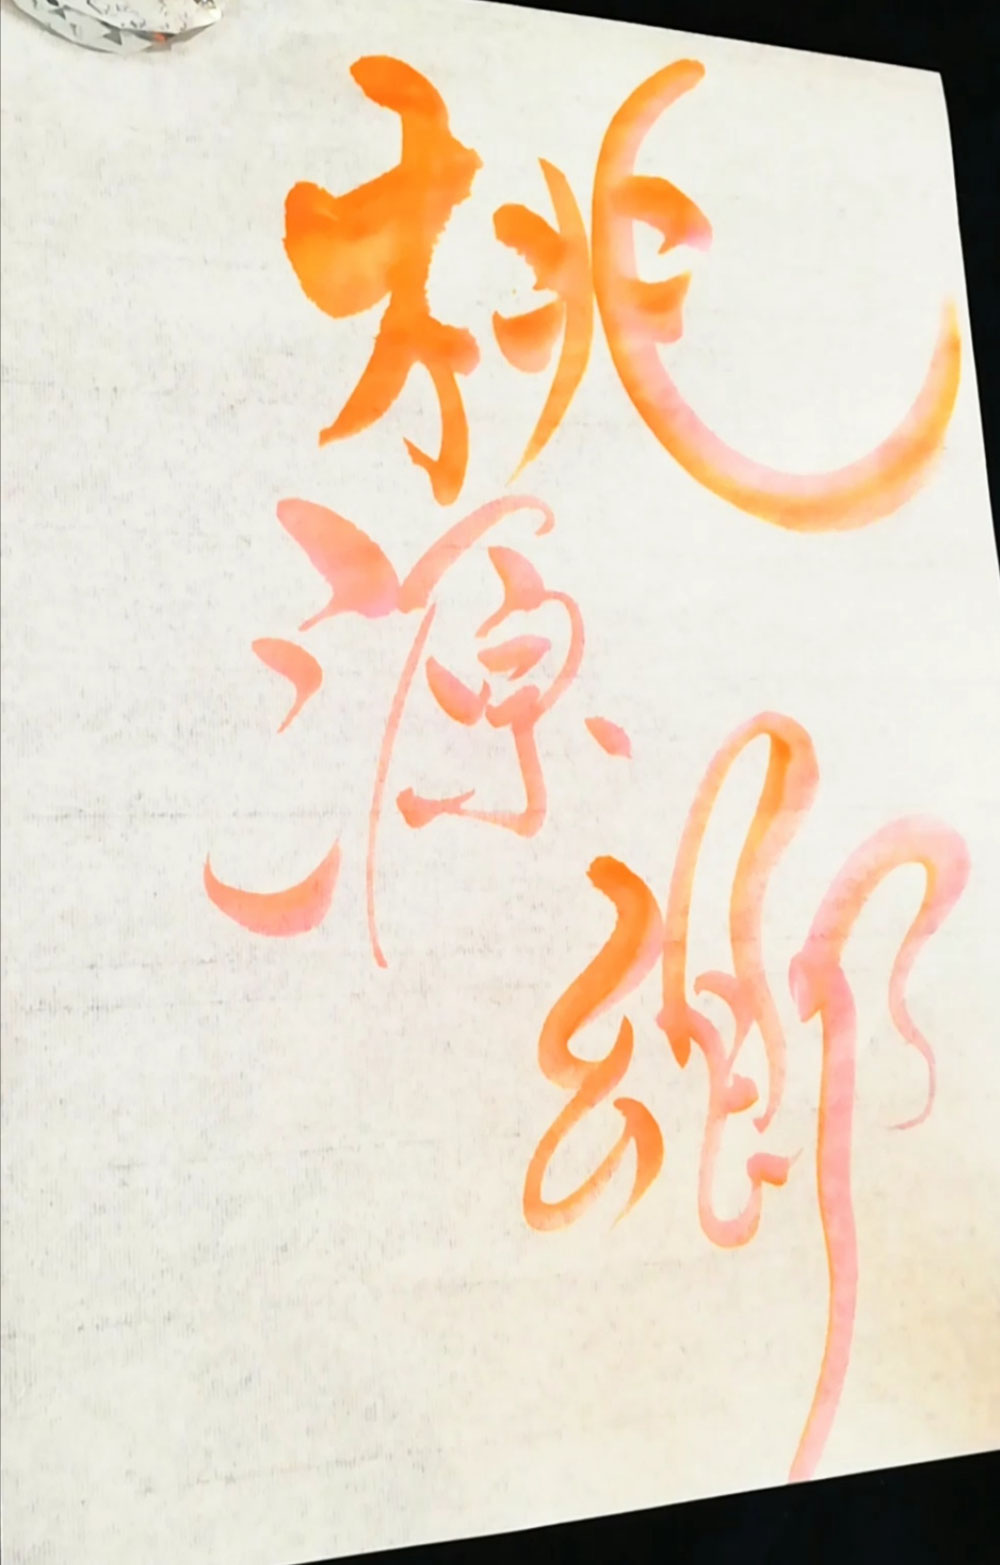 桃源郷